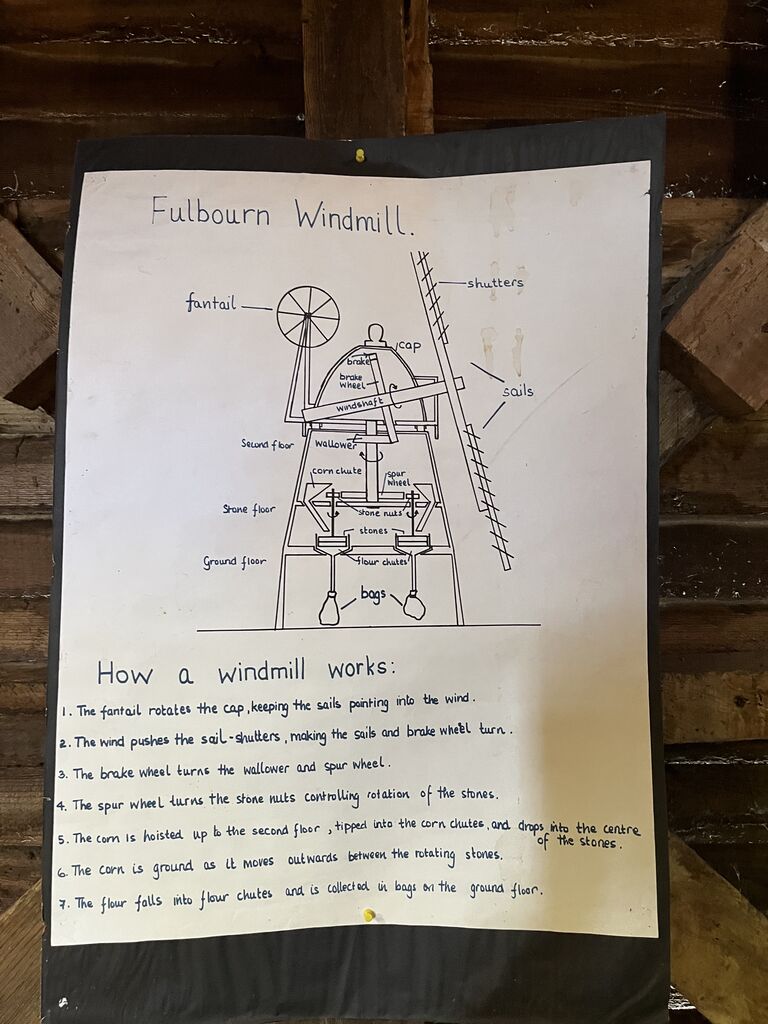 Fulbourn Windmill.
shutters
fantail
cap
brake
brake
wheel
sails
windshaft
Second floor
wallower
corn chute
spur
wheel
Stone floor
stone nuts
stones
Ground floor
flour chutes
bags
How a windmill works:
1. The fantail rotates the cap, keeping the sails pointing into the wind.
2. The wind pushes the sail-shutters, making the sails and brake wheel turn.
3. The brake wheel turns the wallower and spur wheel.
4. The spur wheel turns the stone nuts controlling rotation of the stones.
5. The corn is hoisted up to the second floor, tipped into the corn chutes, and drops into the centre
of the stones.
6. The corn is ground as it moves outwards between the rotating stones.
7. The flour falls into flour chutes and is collected in bags on the ground floor.